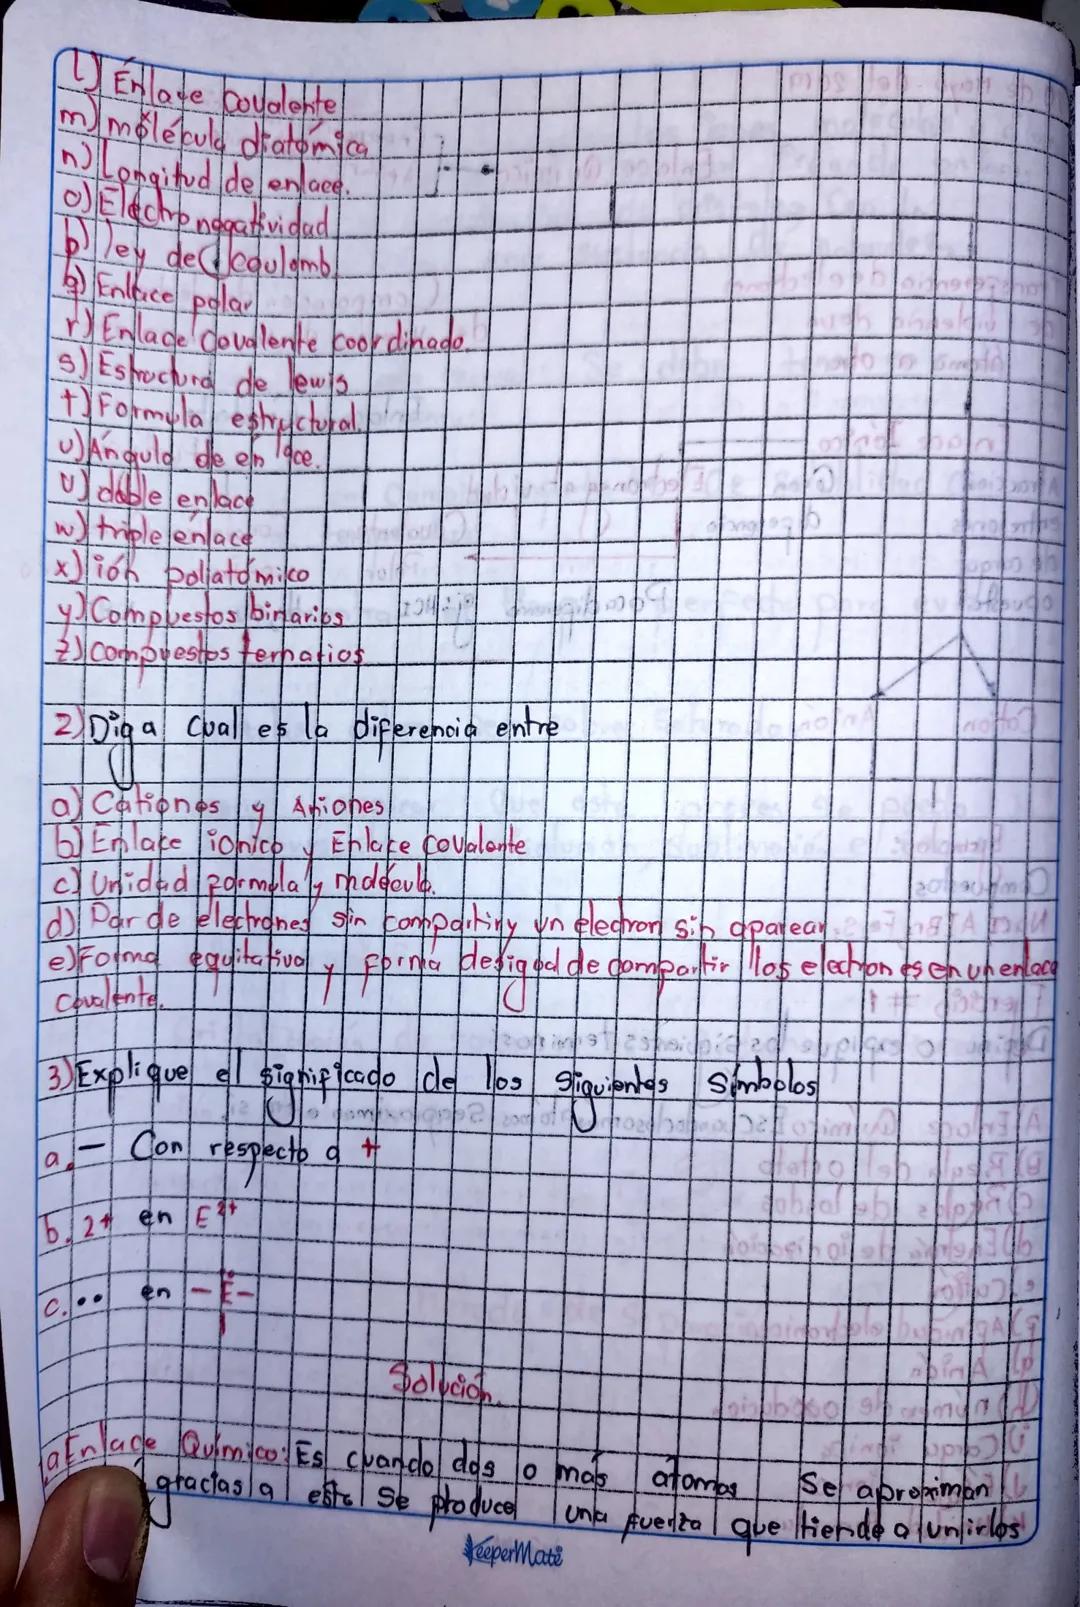 l) Enlace Covalente
m) molécula diatómica
n) Longitud de enlace.
o) Electronegatividad
p) ley de Coulomb
q) Enlace polar
r) Enlace Covalente coordinado.
s) Estructura de lewis
t) Formula estructural.
u) Ángulo de enlace.
v) doble enlace
w) triple enlace
x) ión poliatómico
y) Compuestos binarios
z) compuestos ternarios
2) Diga cual es la diferencia entre
a) Cationes y Aniones
b) Enlace iónico y Enlace covalente
c) Unidad formula y molécula.
d) Par de electrones sin compartir y un electron sin aparear.
e) Forma equitativa y forma desigual de compartir los electrones en un enlace
Covalente.
3) Explique el significado de los siguientes Símbolos
a. - Con respecto a +
b. 2+ en E²⁺
c. •• en - Ë -
Solución.
a Enlace Químico: Es cuando dos o más atomos Se aproximan
gracias a esto Se produce una fuerza que tiende a unirlos
KeeperMate